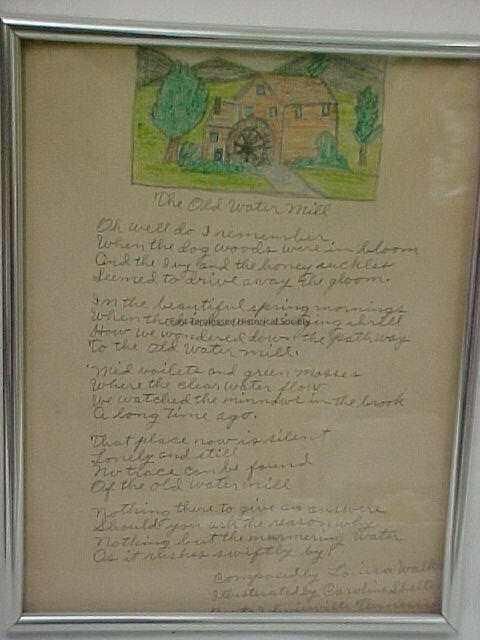 The Old Water Mill
Oh well do I remember
When the dog woods were in bloom
And the Ivy and the honey suckles
Seemed to drive away the gloom.
In the beautiful spring mornings
When the shrill
East Tennessee Historical Society
How we wondered down the path way
To the old water mill.
'Mid voilets and green mosses
Where the clear water flow
We watched the minnows in the brook
A long time ago.
That place now is silent
Lonely and still
No trace can be found
Of the old water mill
Nothing there to give an answere
Should you ask the reason why
Nothing but the murmering water
As it rushes swiftly by
Composed by Louisa Walk
Illustrated by Caroline Shelto